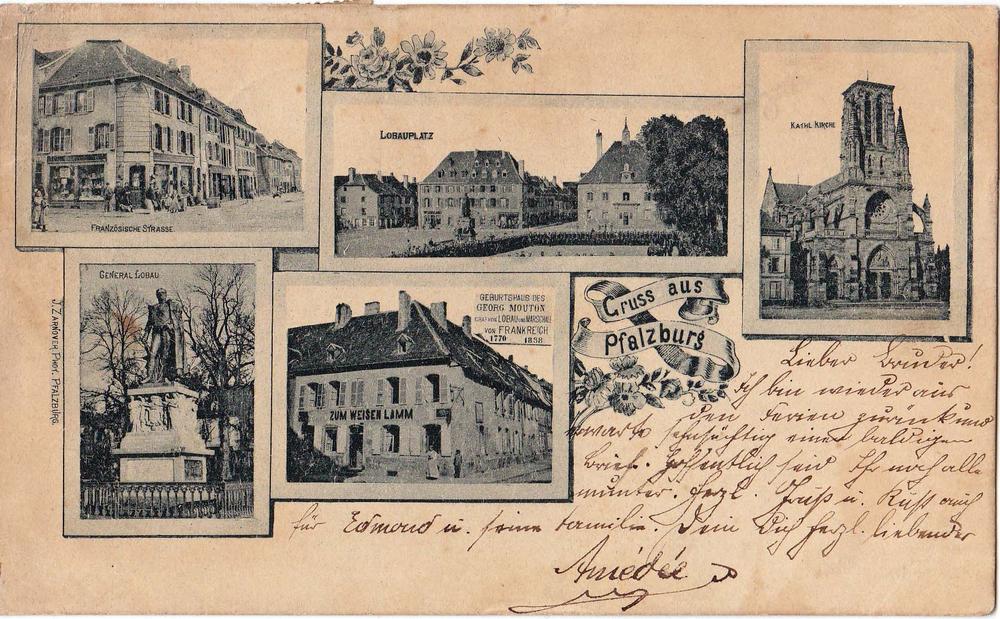 FRANZÖSISCHE STRASSE
LOBAUPLATZ
KATHL. KIRCHE
GENERAL LOBAU
GEBURTSHAUS DES
GEORG MOUTON
GRAF VON LOBAU UND MARSCHALL
VON FRANKREICH
1770 1838
ZUM WEISEN LAMM
Gruss aus
Pfalzburg
J. ZARNOVER, PHOT. PFALZBURG.
Lieber Bruder!
Ich bin wieder aus
den Ferien zurück und
erwarte sehnsüchtig einen baldigen
Brief. Hoffentlich seid Ihr noch alle
munter. Herzl. Gruß u. Kuß auch
für Edmond u. seine Familie. Dein Dich herzl. liebender
Amédée